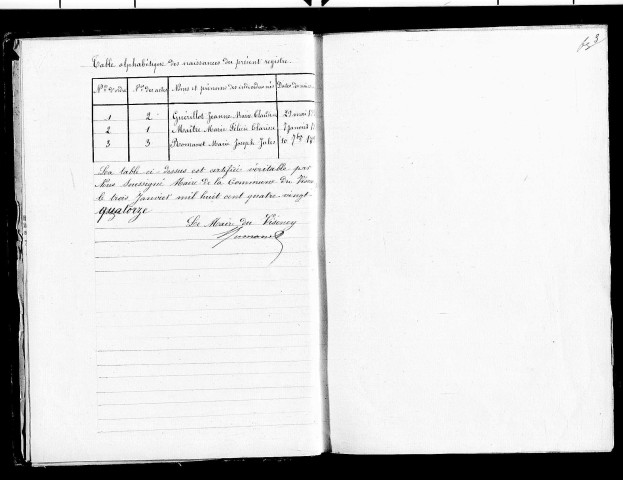 Table alphabétique des naissances du présent registre
Nos d'ordre Nos des actes Noms et prénoms des individus nés Dates des nais
1 2 Guérillot Jeanne Marie Claudine 29 mai
2 1 Maître Marie Félicie Clarisse 7 Janvier
3 3 Romanet Marie Joseph Jules 10 7bre
La table ci-dessus est certifiée véritable par
Nous soussigné Maire de la Commune du
le trois Janvier mil huit cent quatre-vingt-
quatorze
Le Maire du Viseney
Romanet